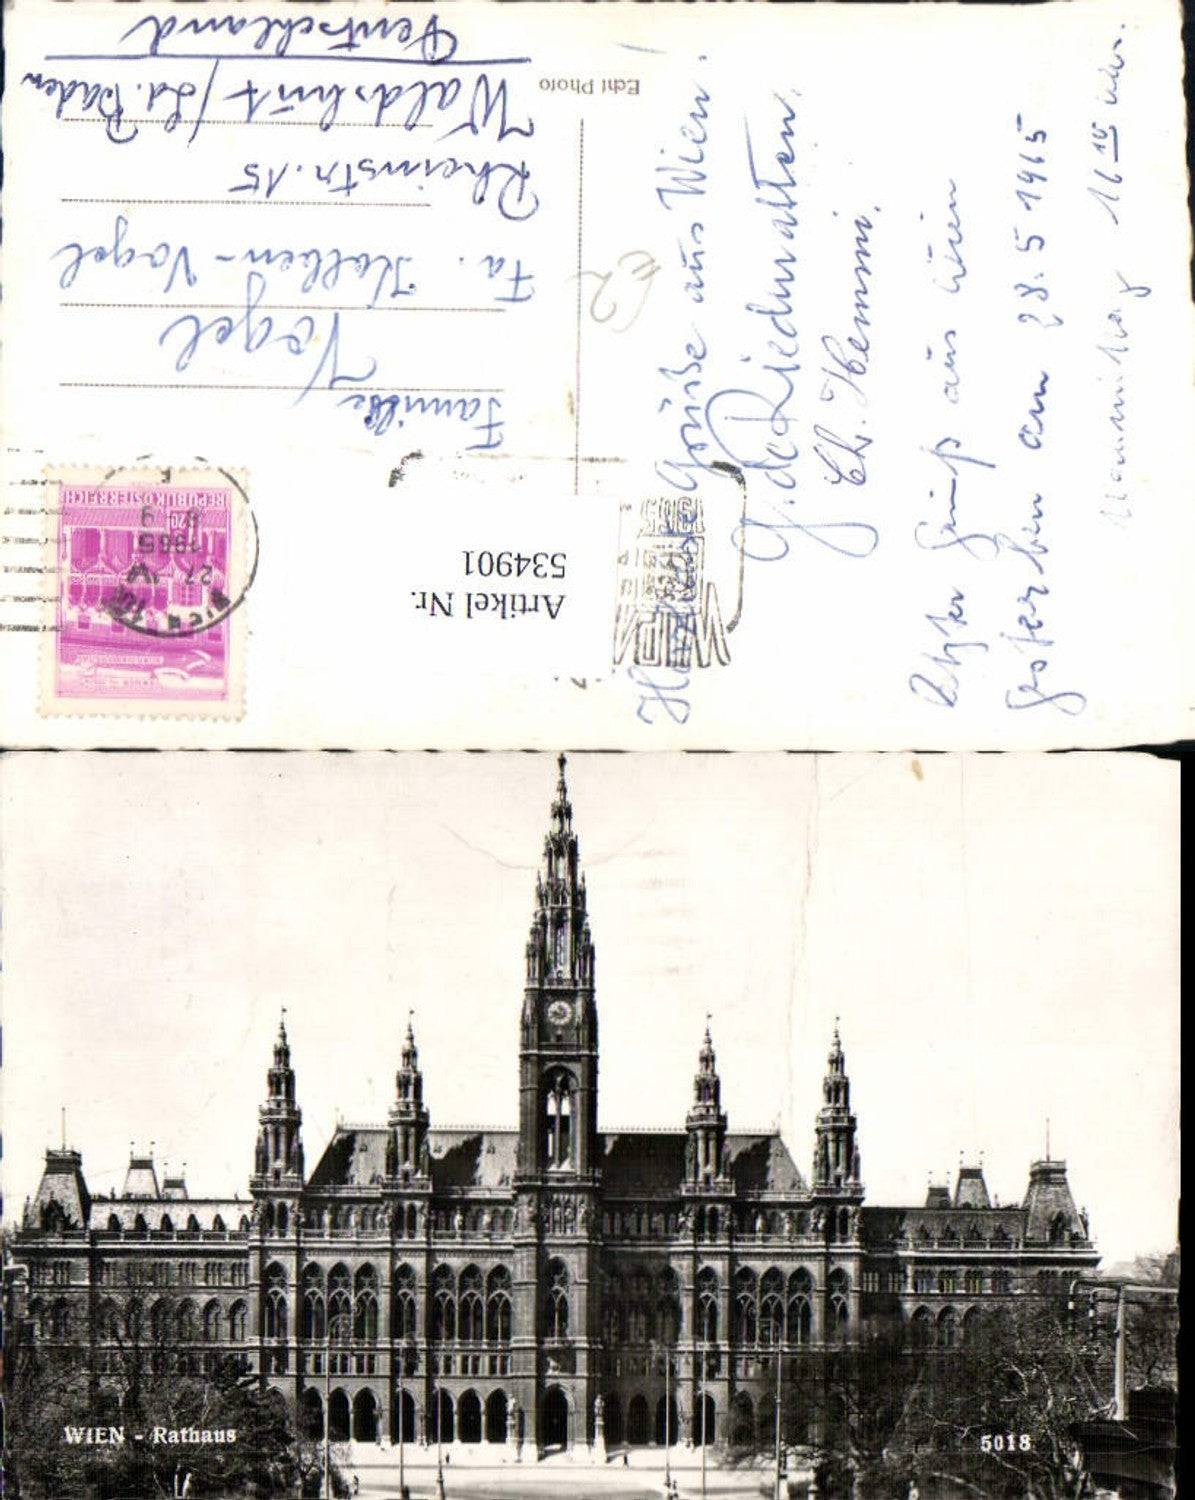 Herzliche Grüße aus Wien.
G. de Riedmatten.
Ch. Hemmi.
Letzter Gruß aus Wien
gestorben am 28.5 1965
Nachmittag 16 10 Uhr.
Echt Photo
Familie
Vogel
Fa. Kolben-Vogel
Rheinstr. 15
Waldshut / Ld. Baden
Deutschland
Artikel Nr.
534901
REPUBLIK ÖSTERREICH
WIEN
27. IV
1965
WIEN
1965
WIEN - Rathaus
5018